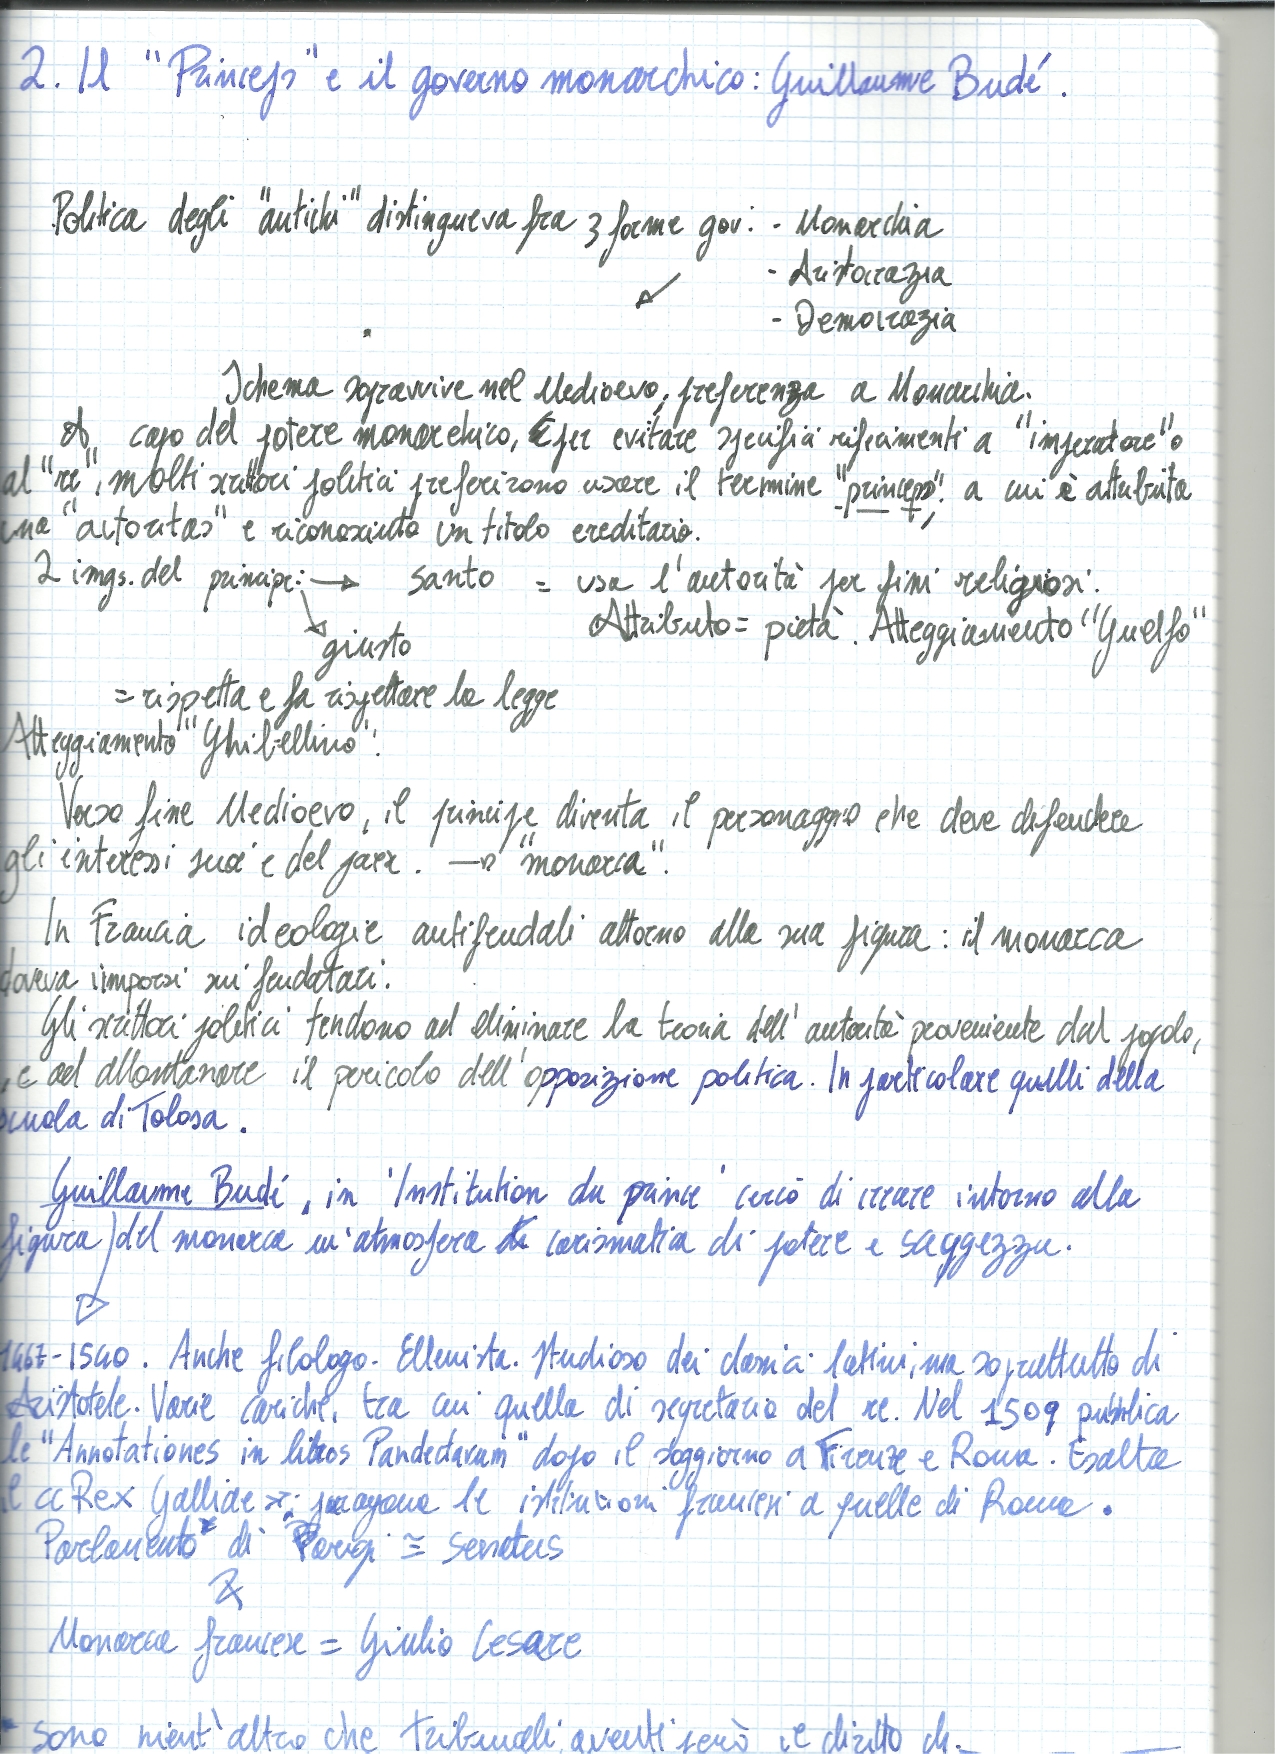 2. Il "Princeps" e il governo monarchico: Guillaume Budé.
Politica degli "antichi" distingueva fra 3 forme gov: - Monarchia
- Aristocrazia
- Democrazia
Schema sopravvive nel Medioevo, preferenza a Monarchia.
A capo del potere monarchico, per evitare specifici riferimenti a "imperatore" o
al "re", molti scrittori politici preferirono usare il termine "princeps", a cui è attribuita
una "actoritas" e riconosciuto un titolo ereditario.
2 imgs. del principe: → santo = usa l'autorità per fini religiosi.
giusto Attributo = pietà. Atteggiamento "Guelfo"
= rispetta e fa rispettare la legge
Atteggiamento "Ghibellino".
Verso fine Medioevo, il principe diventa il personaggio che deve difendere
gli interessi suoi e del paese. → "monarca".
In Francia ideologie antifeudali attorno alla sua figura: il monarca
doveva imporsi sui feudatari.
Gli scrittori politici tendono ad eliminare la teoria dell'autorità proveniente dal popolo,
e ad allontanare il pericolo dell'opposizione politica. In particolare quelli della
scuola di Tolosa.
Guillaume Budé, in 'Institution du prince' cercò di creare intorno alla
figura del monarca un'atmosfera carismatica di potere e saggezza.
1467-1540. Anche filologo. Ellenista. Studioso dei classici latini, ma soprattutto di
Aristotele. Varie cariche, tra cui quella di segretario del re. Nel 1509 pubblica
le "Annotationes in libros Pandectarum" dopo il soggiorno a Firenze e Roma. Esalta
il «Rex Galliae»; paragona le istituzioni francesi a quelle di Roma.
Parlamento* di Parigi ≅ senatus
Monarca francese = Giulio Cesare
* sono nient'altro che tribunali, aventi però il diritto di